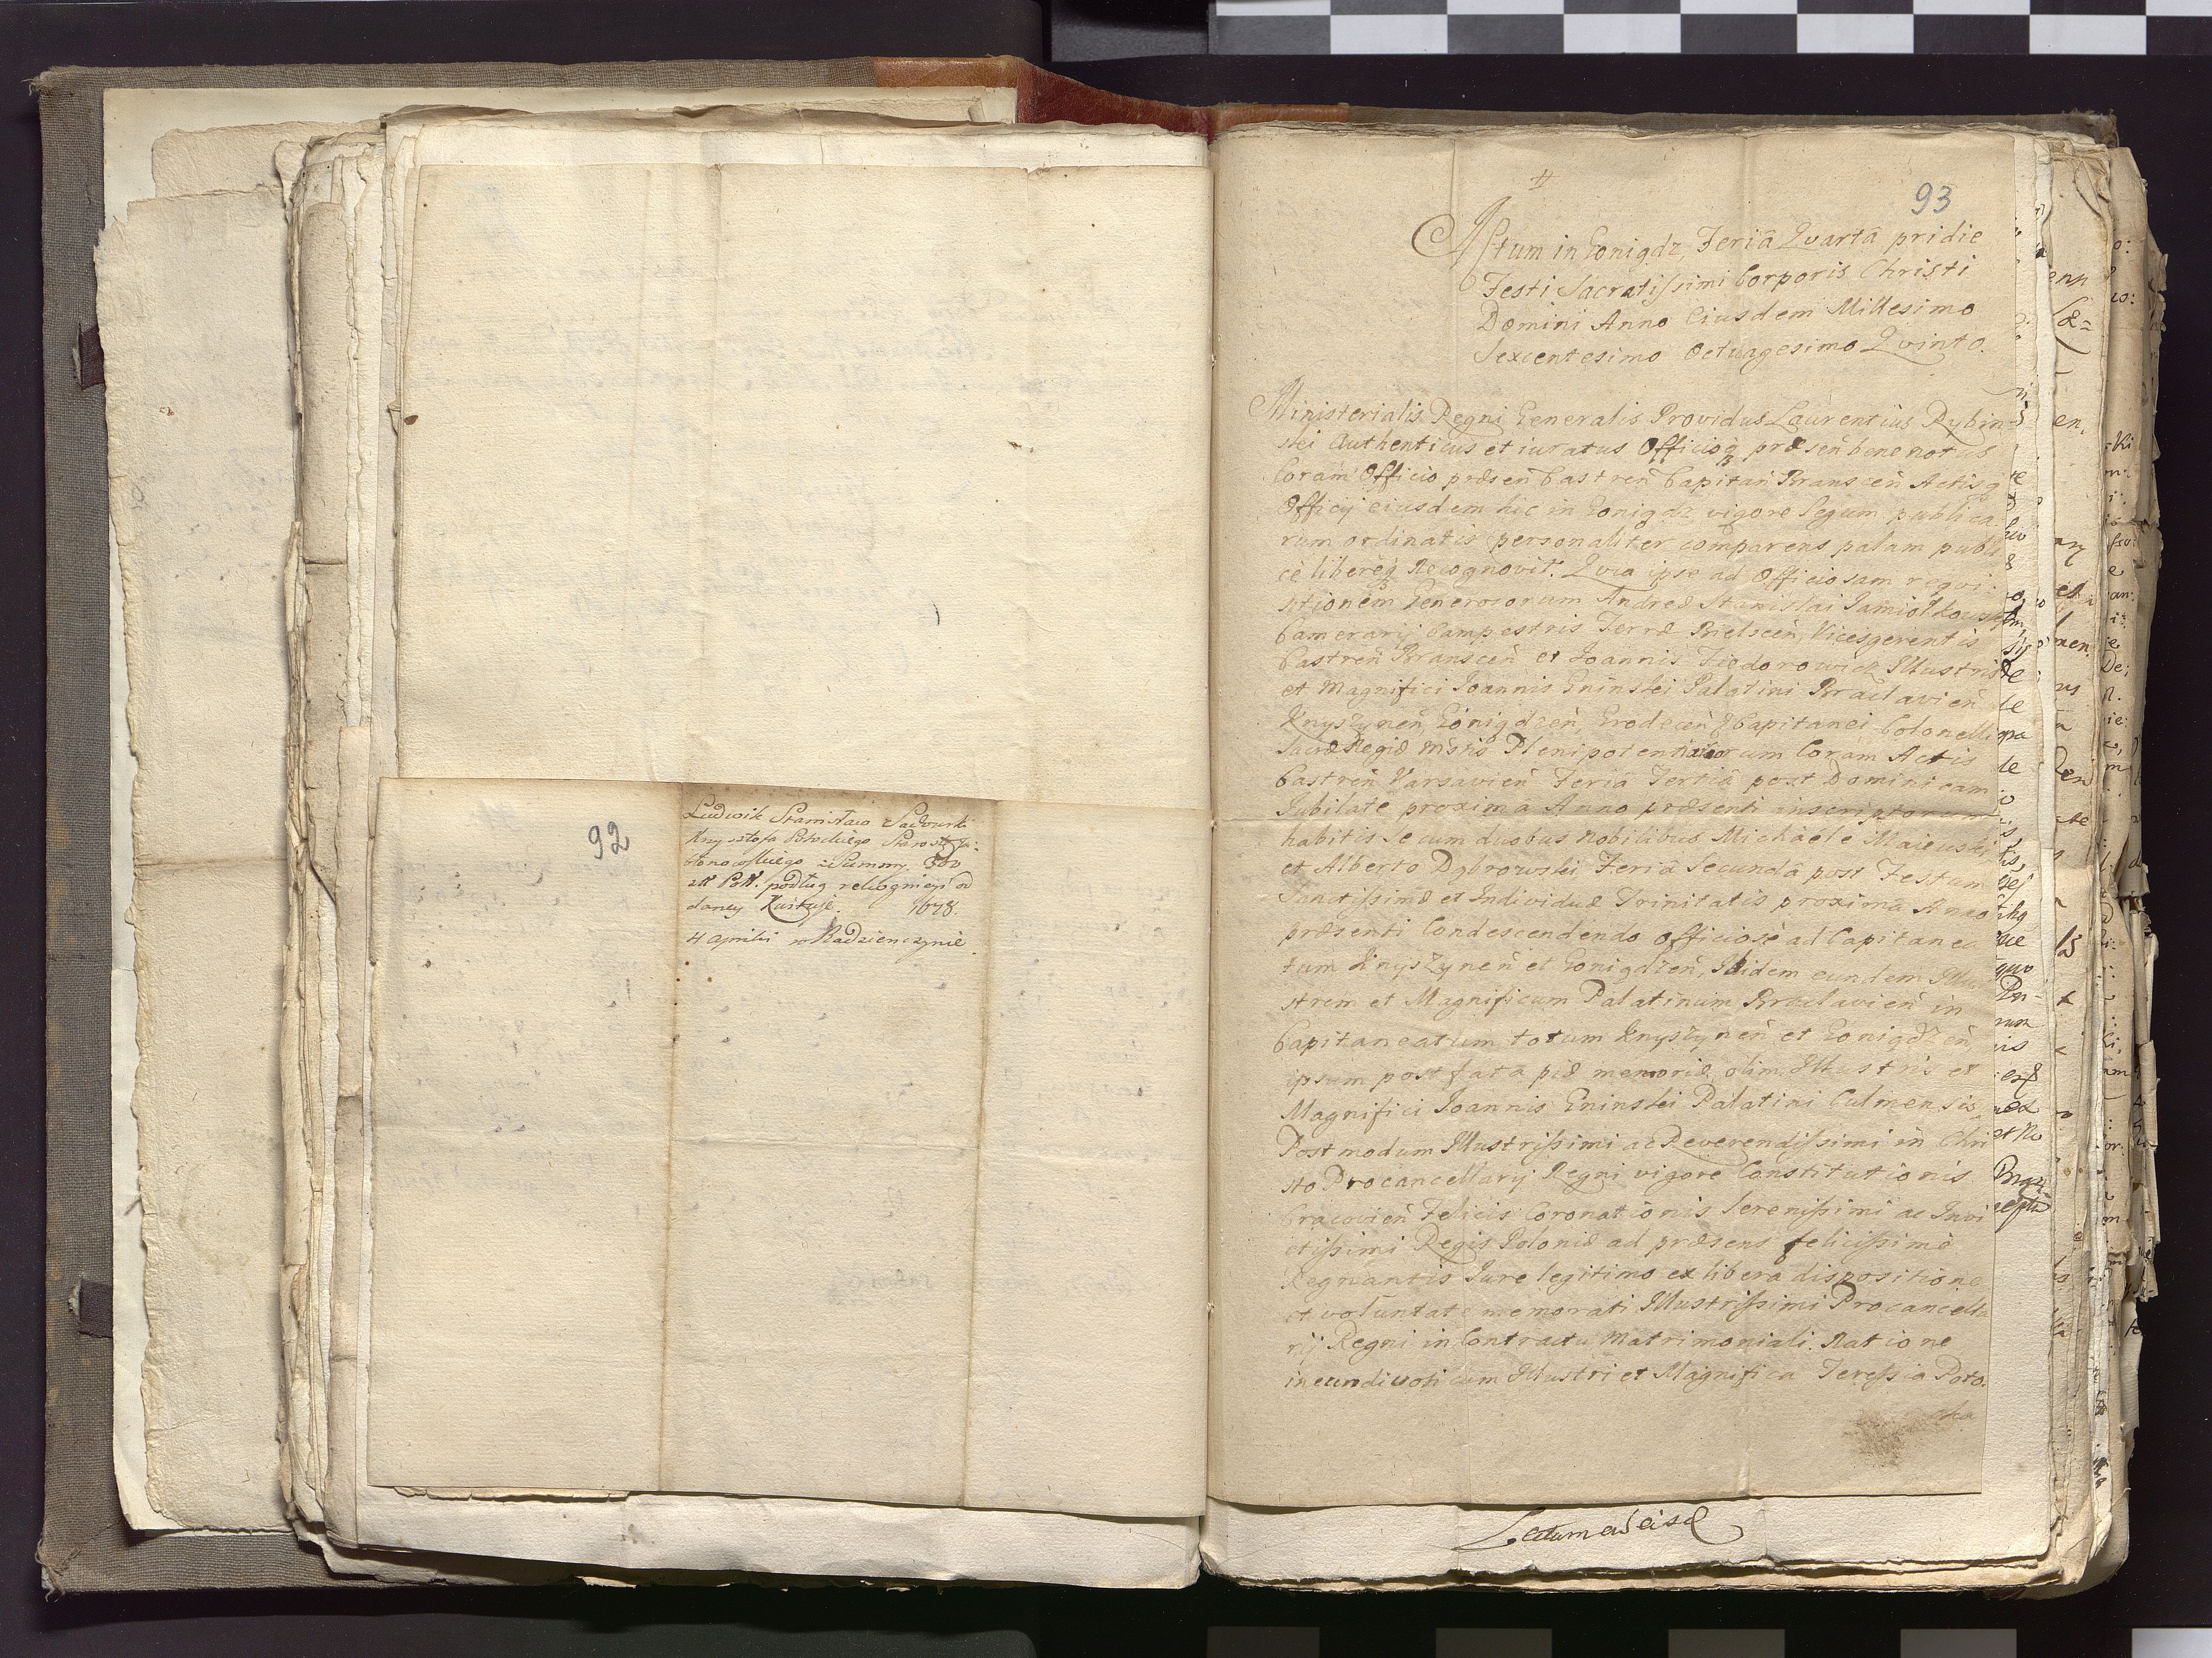 92
Ludwik Stanisław Sadowski
Krysztofa Potockiego Starost. Ja:
błonowskiego z Summy 500
zł Pol. podług rekognicyi od
daney kwituje. 1678.
4 Aprilis w Radzienczynie
93
Actum in Gonigdz, Feriâ Qvartâ pridie
Festi Sacratissimi Corporis Christi
Domini Anno Eiusdem Millesimo
Sexcentesimo Octuagesimo Qvinto.
Ministerialis Regni Generalis Providus Laurentius Rybin
ski Authenticus et iuratus Officioq præsen bene notus
Coram Officio præsen Castren Capitan Branscen Actisq
Officij eiusdem hic in Gonigdz vigore legum publica
rum ordinatis personaliter comparens palam publi
cè liberèq Recognovit. Qvia ipse ad Officiosam reqvi
sitionem Generosorum Andreæ Stanislai Jamiołkowski
Camerarij Campestris Terræ Bielscen, Vicesgerentis
Castren Branscen et Joannis Fiedorowicz Illustris
et Magnifici Joannis Gninski Palatini Braclavien
Knyszynen, Gonigdzen, Grodecen & Capitanei Colonelli
Sacræ Regiæ Mstis Plenipotentiariorum Coram Actis
Castren Varsavien Feriâ Tertiâ post Dominicam
Jubilate proximâ Anno præsenti inscriptorum
habitis secum duobus nobilibus Michaele Maiewski
et Alberto Dąbrowski, Feriâ Secundâ post Festum
Sanctissimæ et Individuæ Trinitatis proximâ Anno
præsenti Condescendendo Officiosè ad Capitanea
tum Knyszynen et Gonigdzen, Ibidem eundem Illu
strem et Magnificum Palatinum Braclavien in
Capitaneatum totum Knyszynen et Gonigdzen
ipsum post fata piæ memoriæ olim Illustris et
Magnifici Joannis Gninski Palatini Culmensis,
Postmodum Illustrissimi ac Reverendissimi in Chri
sto Procancellarij Regni vigore Constitutionis
Cracovien Felicis Coronationis Serenissimi ac Invi
ctissimi Regis Poloniæ ad præsens felicissimè
Regnantis Jure legitimo ex libera dispositione
et voluntate memorati Illustrissimi Procancella
rij Regni in Contractu Matrimoniali Ratione
ineundi voti cum Illustri et Magnifica Teressia Poto.
cka
Lectum ad eisd